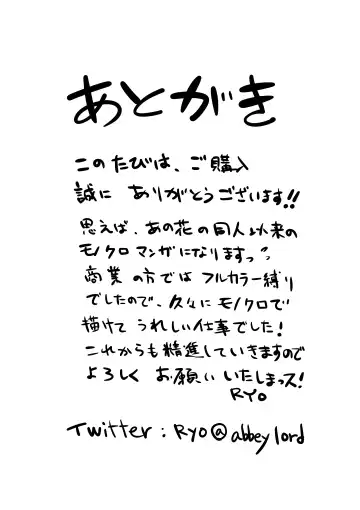 あとがき
このたびは、ご購入
誠に ありがとうございます!!
思えば、あの花の同人以来の
モノクロマンガになりますっっ
商業の方ではフルカラー縛り
でしたので、久々にモノクロで
描けてうれしい仕事でした!
これからも精進していきますので
よろしく お願いいたしまっス!
RYO
Twitter : Ryo@abbeylord